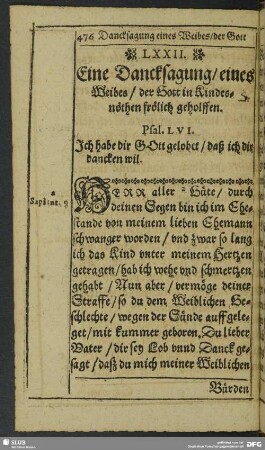 476 Dancksagung eines Weibes/der Gott
LXXII.
Eine Dancksagung/eines
Weibes/der Gott in Kindes-
nöthen frölich geholffen.
Psal. LVI.
Ich habe dir GOtt gelobet/daß ich dir
dancken wil.
HERR aller ᵃ Güte/durch
deinen Segen bin ich im Ehe-
stande von meinem lieben Ehemann
schwanger worden/und zwar so lang
ich das Kind vnter meinem Hertzen
getragen/hab ich wehe vnd schmertzen
gehabt/Nun aber/vermöge deiner
Straffe/so du dem Weiblichen Ge-
schlechte/wegen der Sünde auffgele-
get/mit kummer geboren, Du lieber
Vater/dir sey Lob vnnd Danck ge-
sagt/daß du mich meiner Weiblichen
Bürden
a
Sapient. 9
SLUB
DFG